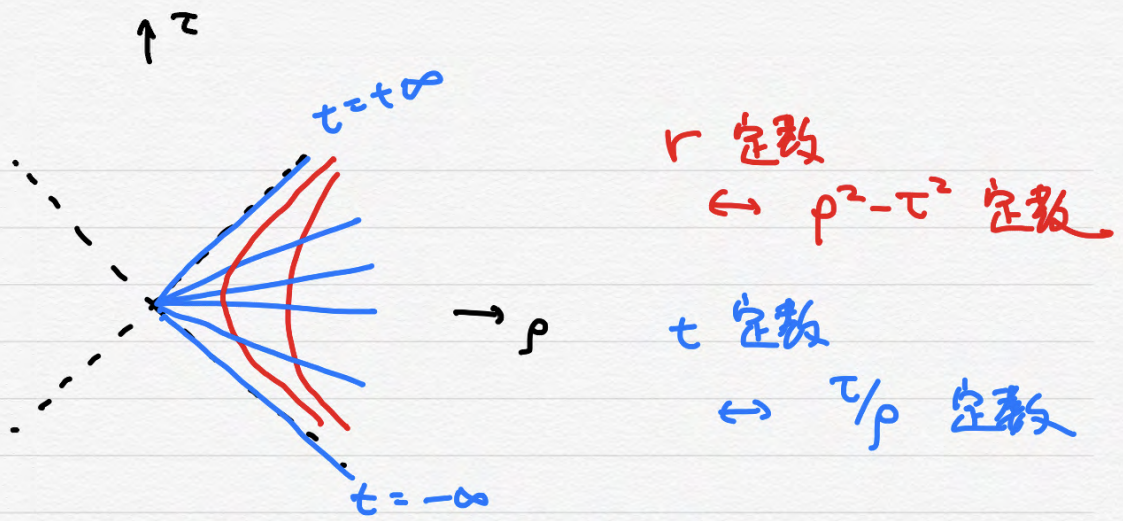 τ
t=+∞
r 定数
↔ ρ²-τ² 定数
ρ
t 定数
↔ τ/ρ 定数
t=-∞